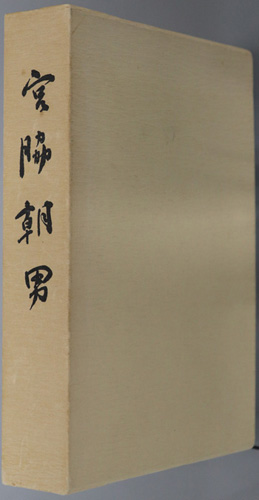 宮脇朝男